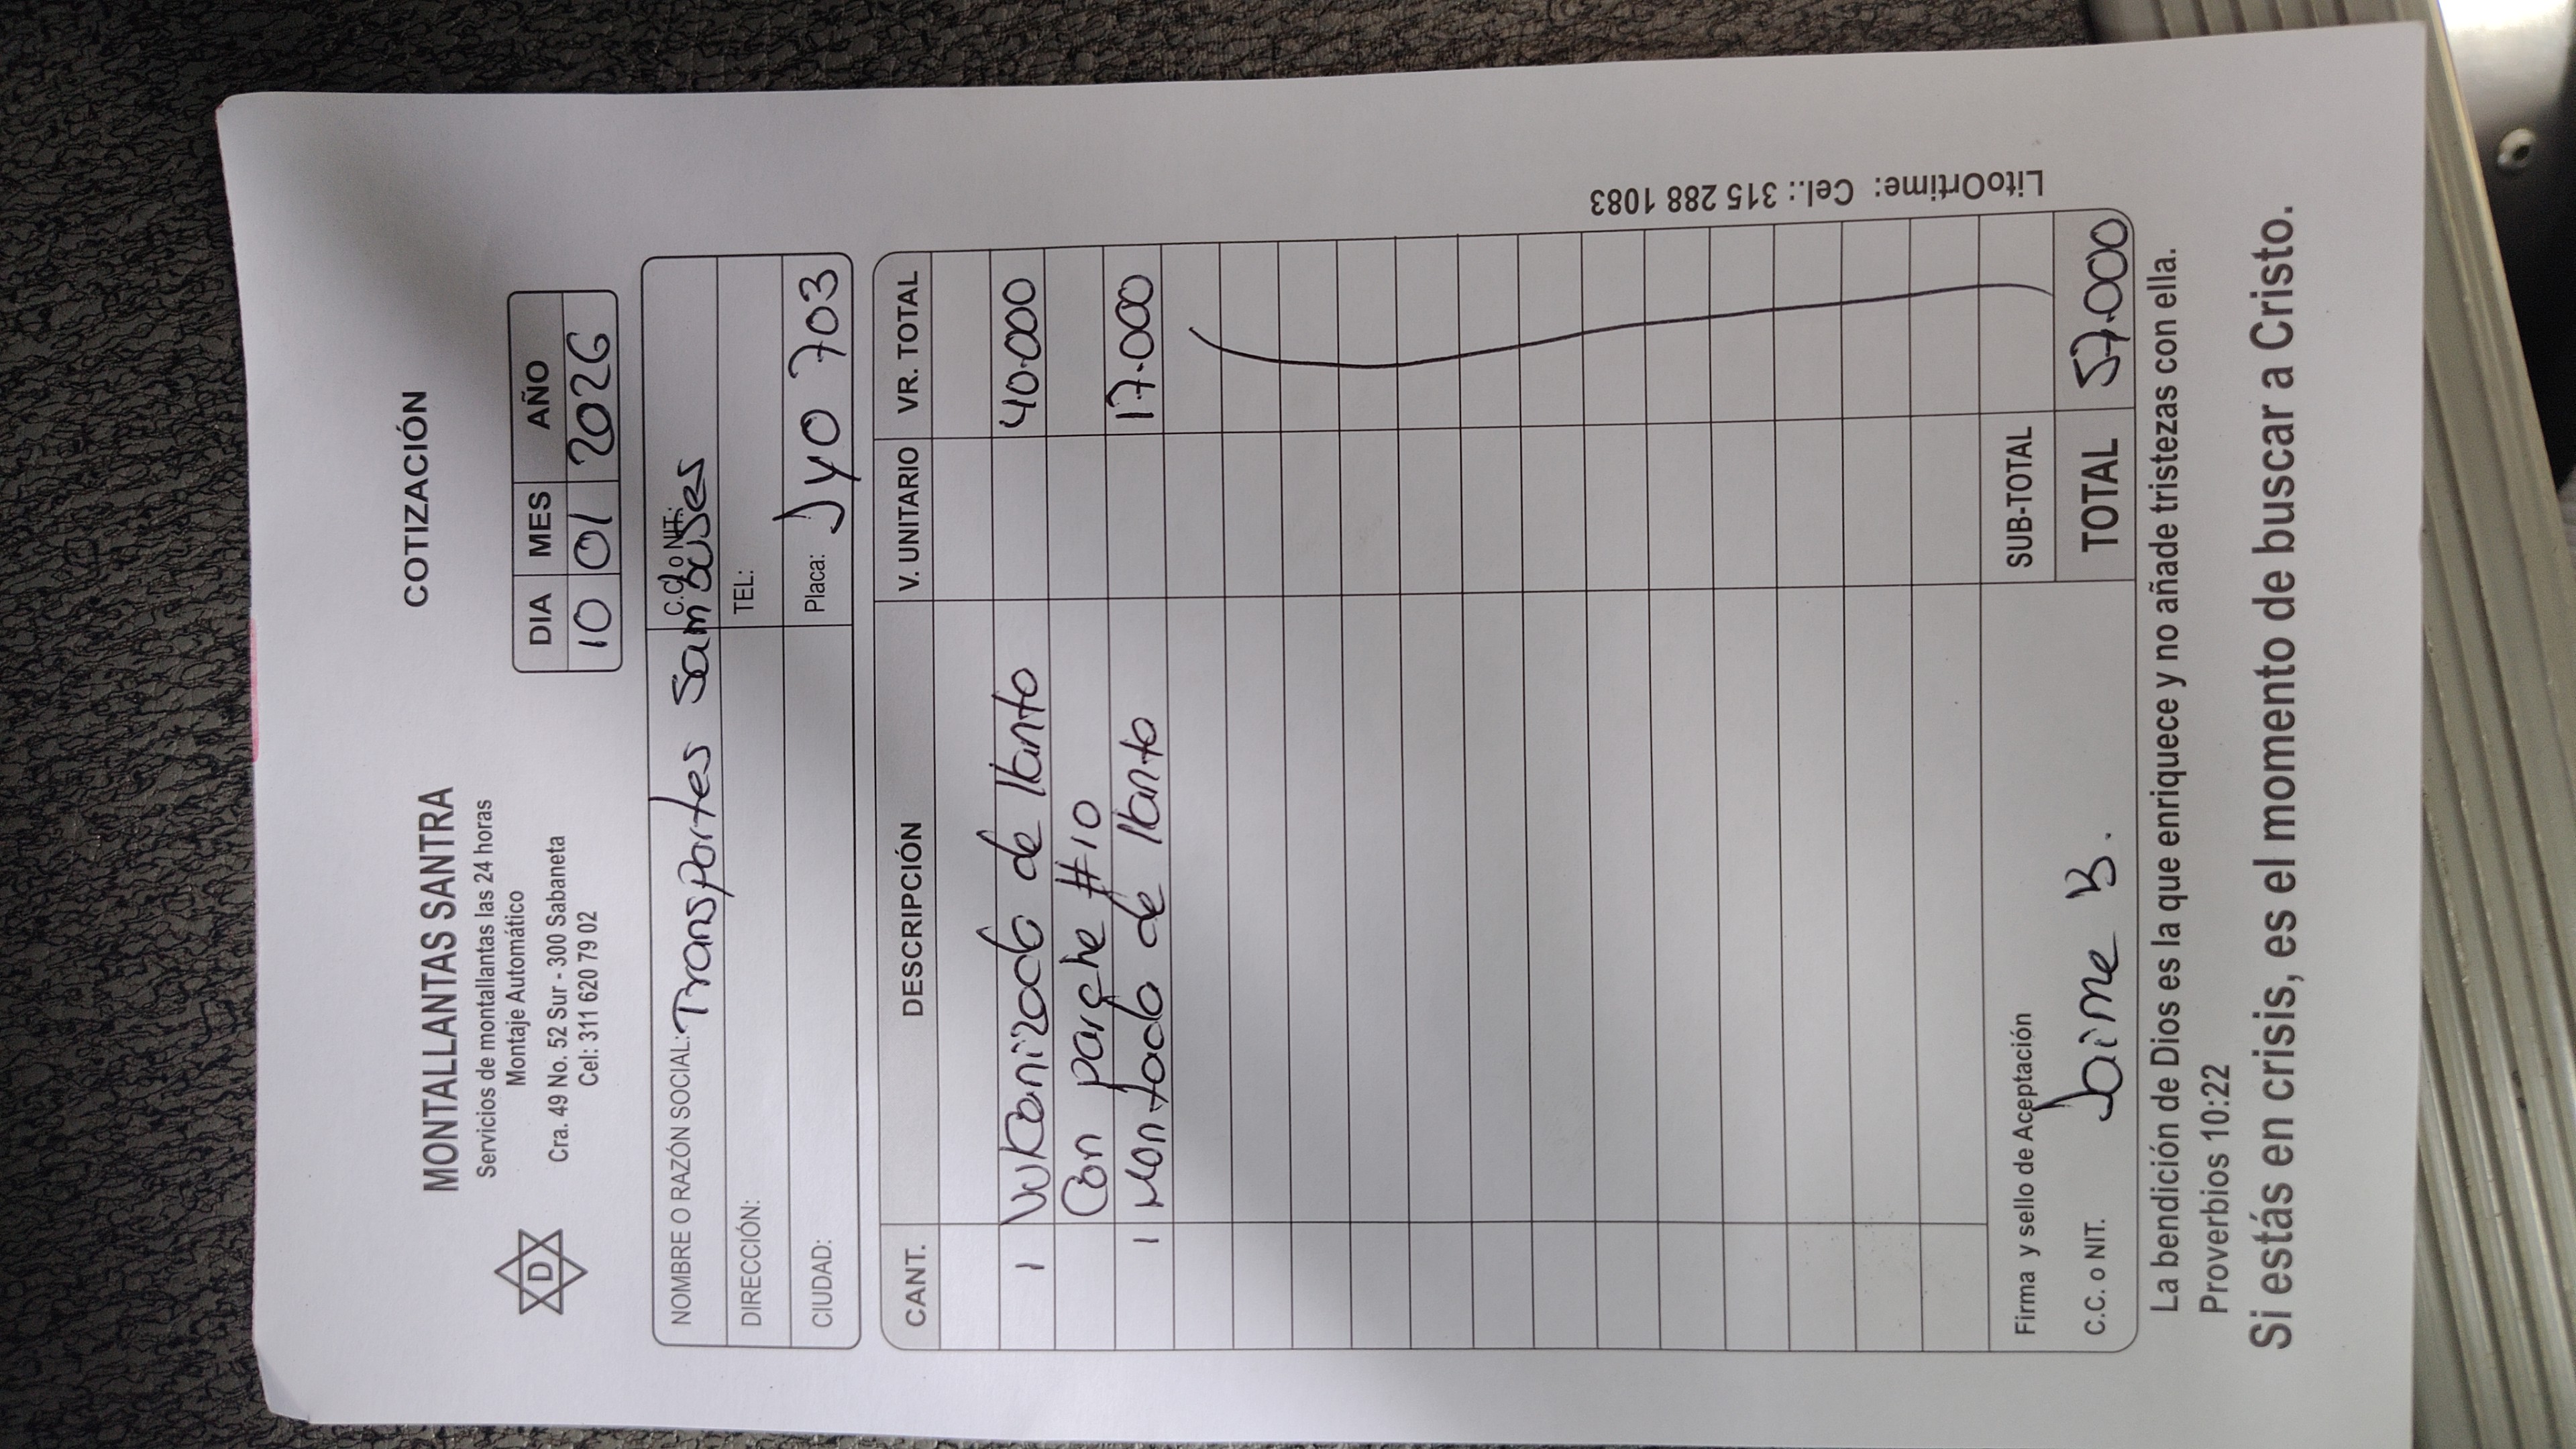 COTIZACIÓN
MONTALLANTAS SANTRA
Servicios de montallantas las 24 horas
Montaje Automático
Cra. 49 No. 52 Sur - 300 Sabaneta
Cel: 311 620 79 02
D
DIA MES AÑO
10 01 2026
NOMBRE O RAZÓN SOCIAL: Transportes Sambuses C.C. o NIT:
DIRECCIÓN: TEL:
CIUDAD: Placa: JYO 703
CANT. DESCRIPCIÓN V. UNITARIO VR. TOTAL
1 Vulkanizada de llanta 40.000
Con parche #10
1 Montada de llanta 17.000
Firma y sello de Aceptación SUB-TOTAL
C.C. o NIT. Jaime B. TOTAL 57.000
LitoOrtime: Cel.: 315 288 1083
La bendición de Dios es la que enriquece y no añade tristezas con ella.
Proverbios 10:22
Si estás en crisis, es el momento de buscar a Cristo.